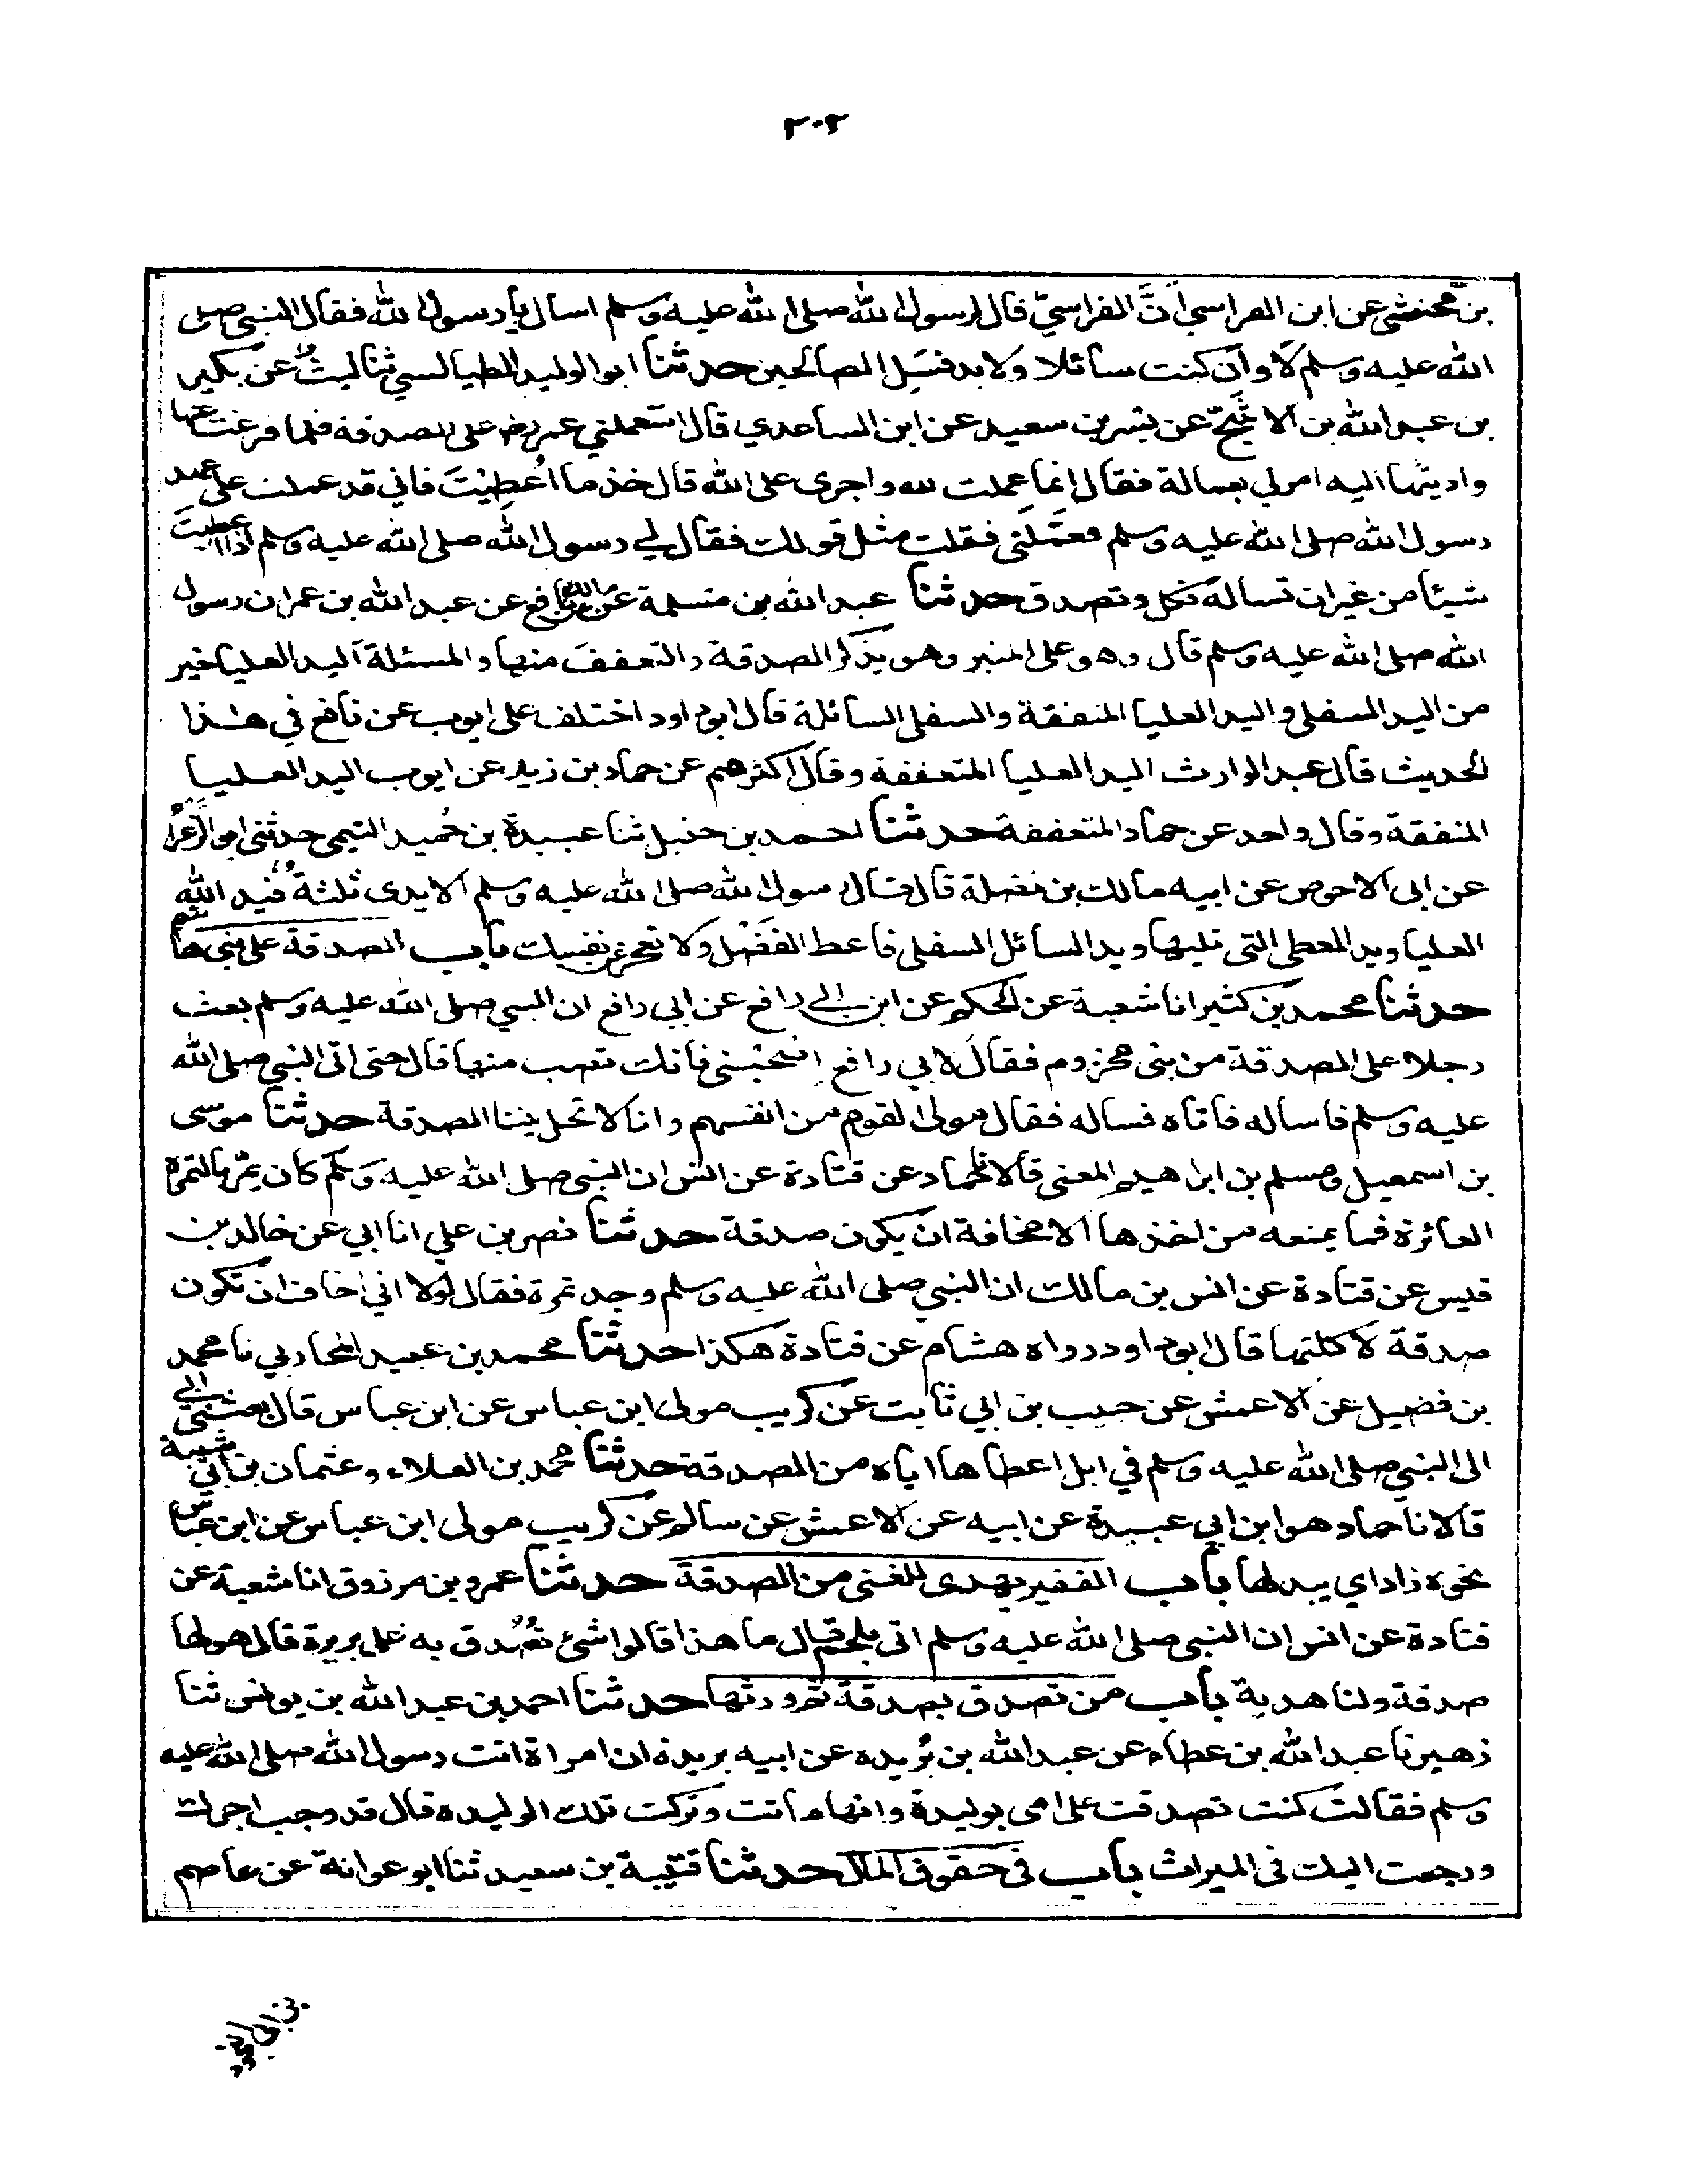 ٣٠٢
بن مخشي عن ابن الفراسي انَّ الفراسيّ قال لرسول الله صلى الله عليه وسلم اسال يا رسول الله فقال النبي صلى
الله عليه وسلم لا وان كنت سائلا ولا بد فسَلِ الصالحين حدثنا ابو الوليد الطيالسي ثنا ليثٌ عن بكير
بن عبد الله بن الاشجّ عن بسر بن سعيد عن ابن الساعدي قال استعملني عمر رض على الصدقة فلما فرغت منها
واديتها اليه امر لي بعمالة فقال انما عملت لله واجري على الله قال خذ ما اُعطِيْتَ فاني قد عملت على عهد
رسول الله صلى الله عليه وسلم فعمّلني فقلت مثل قولك فقال لي رسول الله صلى الله عليه وسلم اذا اعطيت
شيئا من غير ان تساله فكل وتصدق حدثنا عبد الله بن مسلمة عن مالك عن نافع عن عبد الله بن عمر ان رسول
الله صلى الله عليه وسلم قال وهو على المنبر وهو يذكر الصدقة والتعفف منها والمسئلة اليد العليا خير
من اليد السفلى واليد العليا المنفقة والسفلى السائلة قال ابو داود اختلف على ايوب عن نافع في هذا
الحديث قال عبد الوارث اليد العليا المتعففة وقال اكثرهم عن حماد بن زيد عن ايوب اليد العليا
المنفقة وقال واحد عن حماد المتعففة حدثنا احمد بن حنبل ثنا عبيدة بن حُميد التيمي حدثني ابو الزعراء
عن ابى الاحوص عن ابيه مالك بن نضلة قال قال رسول الله صلى الله عليه وسلم الايدى ثلثةٌ فيد الله
العليا ويد المعطى التى تليها ويد السائل السفلى فاعط الفَضْل ولا تعجز عن نفسك باب الصدقة على بني هاشم
حدثنا محمد بن كثير انا شعبة عن الحكم عن ابن ابي رافع عن ابي رافع ان النبي صلى الله عليه وسلم بعث
رجلا على الصدقة من بنى مخزوم فقال لابي رافع اصحبنى فانك تصيب منها قال حتى اتى النبي صلى الله
عليه وسلم فاساله فاتاه فساله فقال مولى القوم من انفسهم وانا لا تحل لنا الصدقة حدثنا موسى
بن اسمعيل ومسلم بن ابراهيم المعنى قالا ثنا حماد عن قتادة عن انس ان النبي صلى الله عليه وسلم كان يمرّ بالتمرة
العائرة فما يمنعه من اخذها الا مخافة ان يكون صدقة حدثنا نصر بن علي انا ابي عن خالد بن
قيس عن قتادة عن انس بن مالك ان النبي صلى الله عليه وسلم وجد تمرة فقال لولا اني اخاف ان تكون
صدقة لاكلتها قال ابو داود رواه هشام عن قتادة هكذا حدثنا محمد بن عبيد المحاربي نا محمد
بن فضيل عن الاعمش عن حبيب بن ابي ثابت عن كريب مولى ابن عباس عن ابن عباس قال بعثني ابي
الى النبي صلى الله عليه وسلم في ابل اعطاها اياه من الصدقة حدثنا محمد بن العلاء وعثمان بن ابي شيبة
قالا نا حماد هو ابن ابي عبيدة عن ابيه عن الاعمش عن سالم عن كريب مولى ابن عباس عن ابن عباس
نحوه زاد اي يبدلها باب الفقير يهدى للغنى من الصدقة حدثنا عمرو بن مرزوق انا شعبة عن
قتادة عن انس ان النبي صلى الله عليه وسلم اتى بلحم قال ما هذا قالوا شئ تُصُدق به على بريرة قال هو لها
صدقة ولنا هدية باب من تصدق بصدقة ثم ورثها حدثنا احمد بن عبد الله بن يونس ثنا
زهير نا عبد الله بن عطاء عن عبد الله بن بُريده عن ابيه بريدة ان امراة اتت رسول الله صلى الله عليه
وسلم فقالت كنت تصدقت على امى بوليدة وانها ماتت وتركت تلك الوليدة قال قد وجب اجرك
ورجعت اليك فى الميراث باب فى حقوق المال حدثنا قتيبة بن سعيد ثنا ابو عوانة عن عاصم